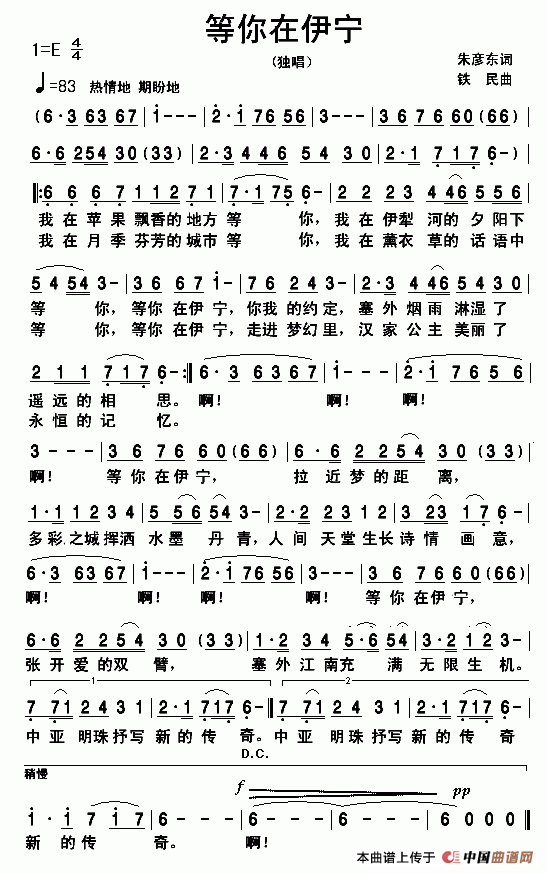 等你在伊宁
（独唱）
1=E 4/4
朱彦东词
铁 民曲
♩=83 热情地 期盼地
(6·3 63 67 | i - - - | 2·i 76 56 | 3 - - - | 36 76 60 (60) |
6·6 2254 30 (33) | 2·3 446 54 30 | 2·1 717 6 - )|
‖: 6 6 6 7 11271 | 7·175 6 - | 2 2 23 446 556 |
我在苹果飘香的地方等 你，我在伊犁 河的夕阳下
我在月季芬芳的城市等 你，我在薰衣 草的话语中
54 54 3 - | 36 67 1 - | 323 446 3 - | 2·4 46 54 543 |
等 你，等你在伊宁，你我的约定，塞外烟雨 淋湿了
等 你，等你在伊宁，走进梦幻里，汉家公主 美丽了
2 11 717 6 - :‖ 6·3 63 67 | i - - - | 2·i 76 56 |
遥远的相 思。啊！ 啊！ 啊！
永恒的记 忆。
3 - - - | 36 76 60 (60) | 6·6 2254 30 (33) |
啊！ 等你在伊宁， 拉近梦的距 离，
1·1 1234 5 565 | 2·2 231 2 - | 3 23 17 6 - |
多彩之城挥洒 水墨 丹青，人间 天堂生长诗情 画意，
6·3 63 67 | i - - - | 2·i 76 56 | 3 - - - | 36 76 60 (60) |
啊！ 啊！ 啊！ 等你在伊宁，
6·6 2254 30 (33) | 1·2 34 5·6 54 | 3·1 12 3 - |
张开爱的双 臂， 塞外江南充 满 无限生机。
1 2
7 71 243 1 | 2·1 717 6 - :‖ 7 71 243 1 | 2·1 717 6 - |
中亚 明珠抒写 新的传 奇。中亚 明珠抒写 新的传 奇
D.C.
稍慢
f pp
i·i 7i 7 | 6 - - - | 6 - - - | 6 - - - | 6 0 0 0 ‖
新的传 奇。啊！
本曲谱上传于 中国曲谱网